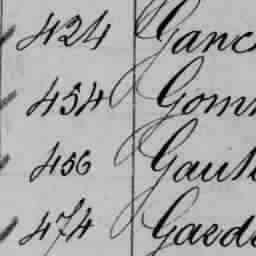 424 Ganc
454 Gom
456 Gaut
474 Gaed